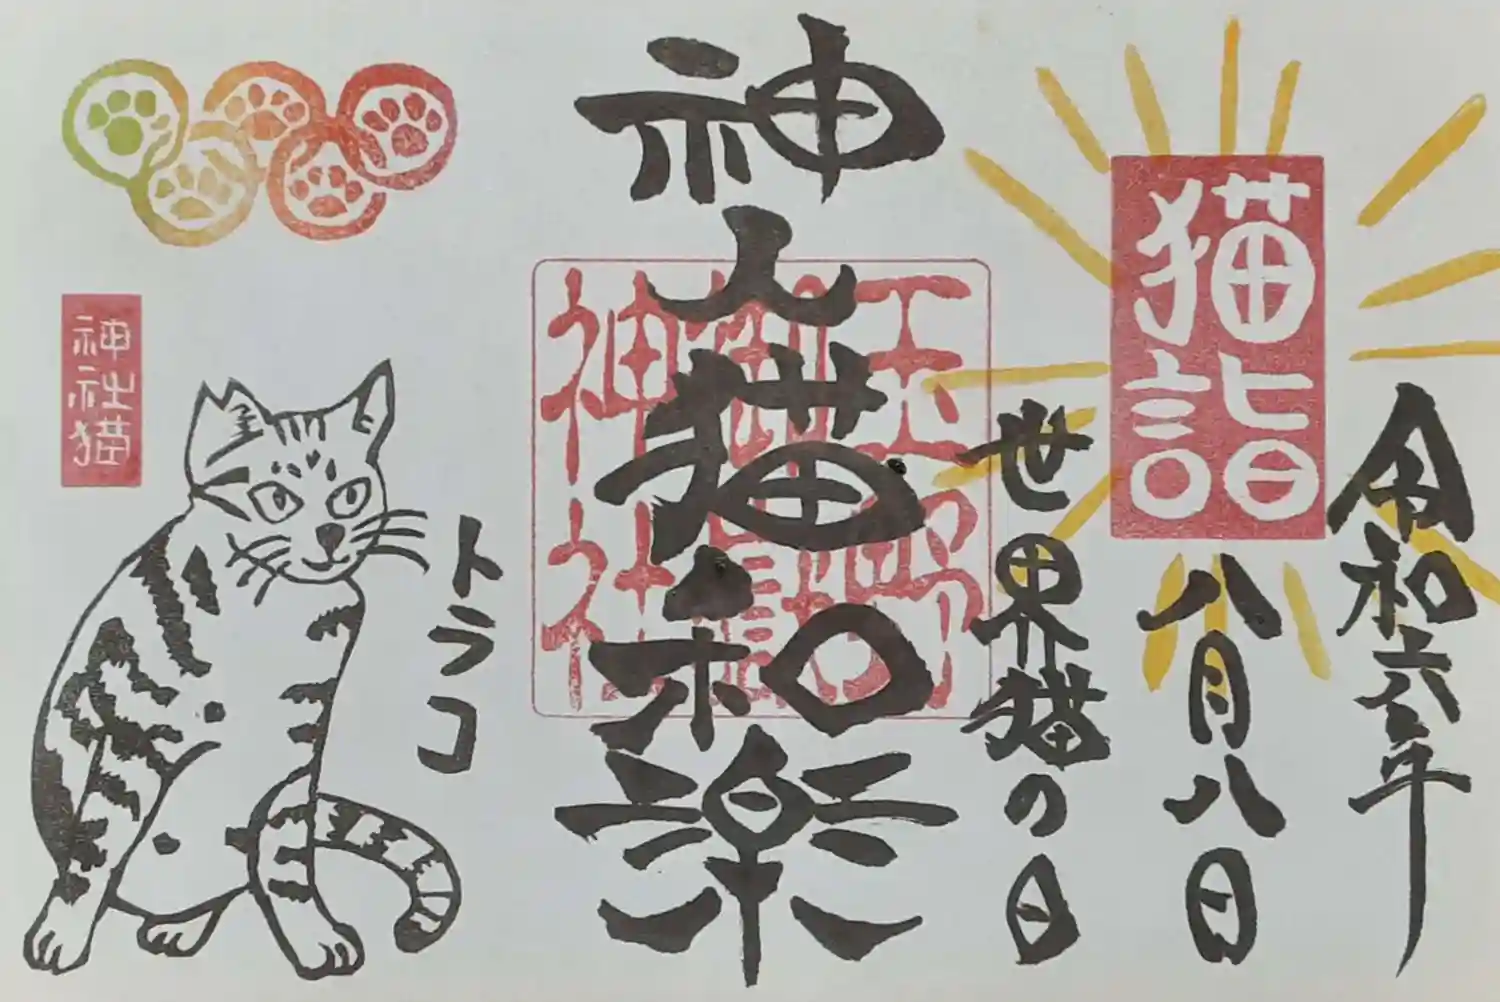 令和六年
猫詣
八月八日
世界猫の日
神人猫和楽
玉野
御嶽
神社
トラコ
神社猫